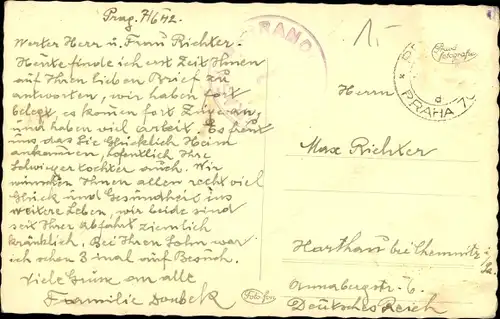 Prag. 7/6 42.
Werter Herr u. Frau Richter.
Heute finde ich erst Zeit Ihnen
auf Ihren lieben Brief zu
antworten, wir haben fort
belegt, es kómen fort Züge an,
und haben viel arbeit. Es freut
uns das Sie Glücklich Heim
ankammen, hofentlich Ihre
Schwigertochter auch. Wir
wünschen Ihnen allen recht viel
Glück und Gesundheit ins
weitere Leben, wir beide sind
seit Ihrer Abfahrt ziemlich
kränklich. Bei Ihren Sohn war
ich schon 3 mal auf Besuch.
Viele Grüse an alle
Framilie Doubek
Fotofon
fotografie
PRAHA
Herrn
Max Richter
Harthau bei Chemnitz i/Sa.
Annabergstr. 6.
Deutsches Reich